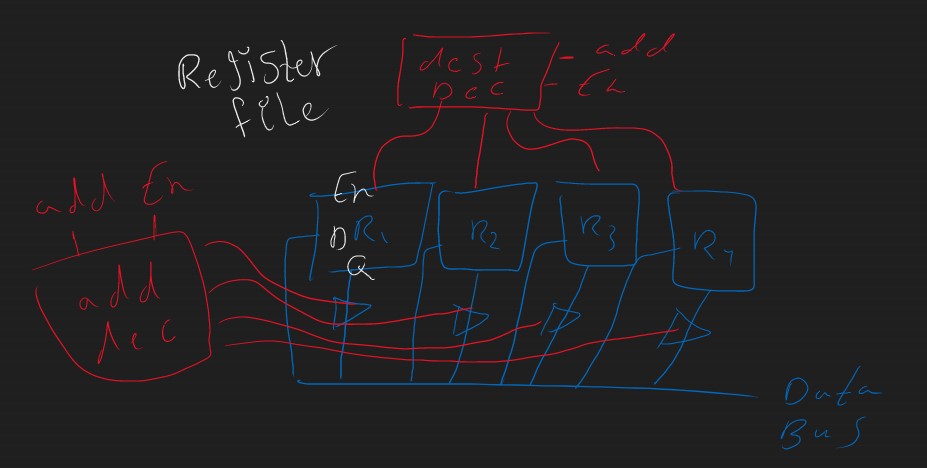 Register
file
dest
Dec
- add
- En
add En
add
dec
En
D
Q
R1
R2
R3
R4
Data
Bus